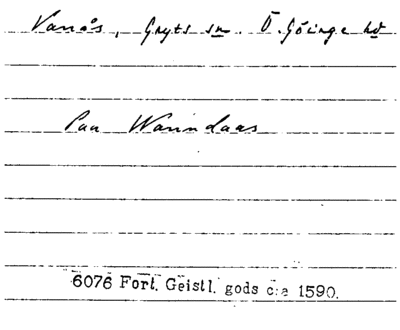 Vanås, Gryts sn. Ö. Göinge hd
Paa Wanndaas
6076 Fort. Geistl. gods c:a 1590.